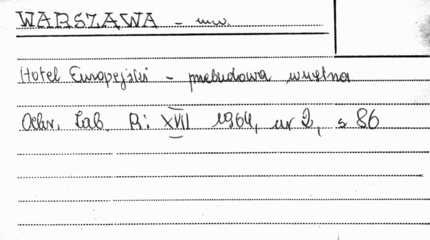 WARSZAWA - mw.
Hotel Europejski - przebudowa wnętrza
Ochr. Zab. R: XVII 1964, nr 2, s 86